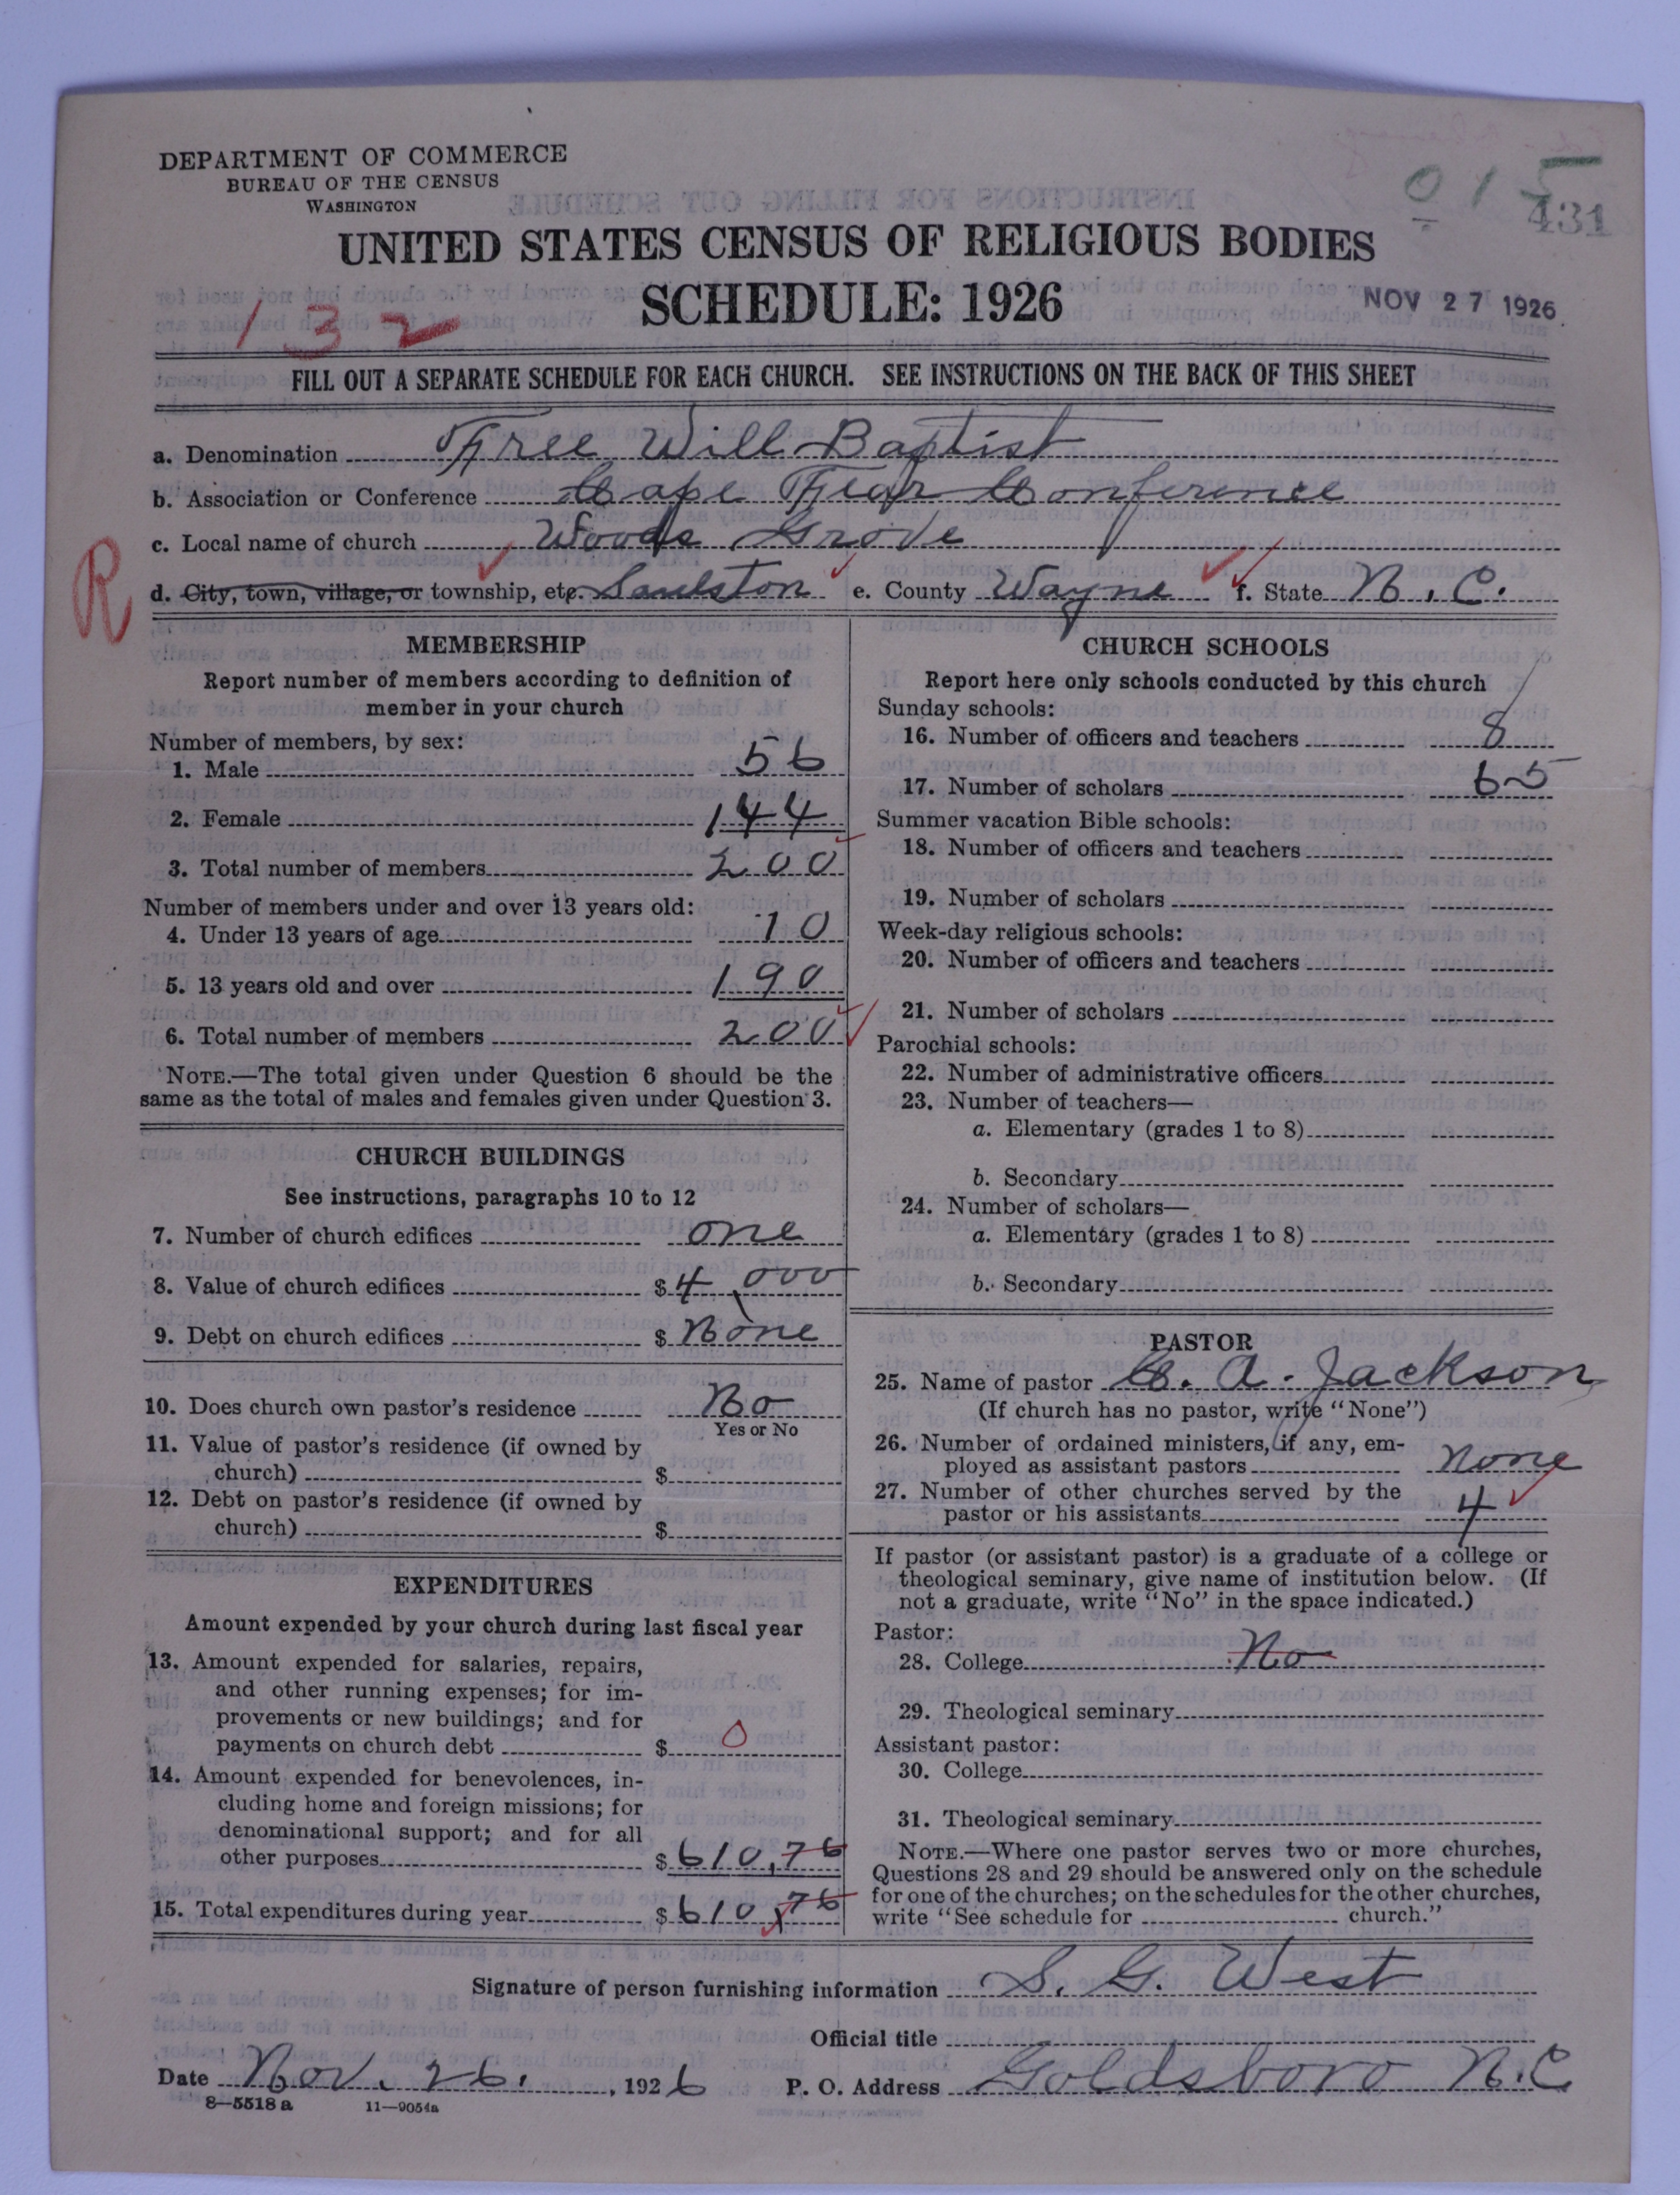 DEPARTMENT OF COMMERCE
BUREAU OF THE CENSUS
WASHINGTON
015
431
UNITED STATES CENSUS OF RELIGIOUS BODIES
SCHEDULE: 1926
NOV 27 1926
132
FILL OUT A SEPARATE SCHEDULE FOR EACH CHURCH. SEE INSTRUCTIONS ON THE BACK OF THIS SHEET
a. Denomination Free Will Baptist
b. Association or Conference Cape Fear Conference
c. Local name of church Woods Grove
R
d. City, town, village, or township, etc. Saulston e. County Wayne f. State N.C.
MEMBERSHIP
Report number of members according to definition of
member in your church
Number of members, by sex:
1. Male 56
2. Female 144
3. Total number of members 200
Number of members under and over 13 years old:
4. Under 13 years of age 10
5. 13 years old and over 190
6. Total number of members 200
NOTE.—The total given under Question 6 should be the
same as the total of males and females given under Question 3.
CHURCH BUILDINGS
See instructions, paragraphs 10 to 12
7. Number of church edifices one
8. Value of church edifices $ 4,000
9. Debt on church edifices $ None
10. Does church own pastor's residence No
Yes or No
11. Value of pastor's residence (if owned by
church) $
12. Debt on pastor's residence (if owned by
church) $
EXPENDITURES
Amount expended by your church during last fiscal year
13. Amount expended for salaries, repairs,
and other running expenses; for im-
provements or new buildings; and for
payments on church debt $ 0
14. Amount expended for benevolences, in-
cluding home and foreign missions; for
denominational support; and for all
other purposes $ 610,76
15. Total expenditures during year $ 610,76
CHURCH SCHOOLS
Report here only schools conducted by this church
Sunday schools:
16. Number of officers and teachers 8
17. Number of scholars 65
Summer vacation Bible schools:
18. Number of officers and teachers
19. Number of scholars
Week-day religious schools:
20. Number of officers and teachers
21. Number of scholars
Parochial schools:
22. Number of administrative officers
23. Number of teachers—
a. Elementary (grades 1 to 8)
b. Secondary
24. Number of scholars—
a. Elementary (grades 1 to 8)
b. Secondary
PASTOR
25. Name of pastor C. A. Jackson
(If church has no pastor, write "None")
26. Number of ordained ministers, if any, em-
ployed as assistant pastors None
27. Number of other churches served by the
pastor or his assistants 4
If pastor (or assistant pastor) is a graduate of a college or
theological seminary, give name of institution below. (If
not a graduate, write "No" in the space indicated.)
Pastor:
28. College No
29. Theological seminary
Assistant pastor:
30. College
31. Theological seminary
NOTE.—Where one pastor serves two or more churches,
Questions 28 and 29 should be answered only on the schedule
for one of the churches; on the schedules for the other churches,
write "See schedule for church."
Signature of person furnishing information S. G. West
Official title
Date Nov. 26. , 1926 P. O. Address Goldsboro N.C
8—5518 a 11—9054a